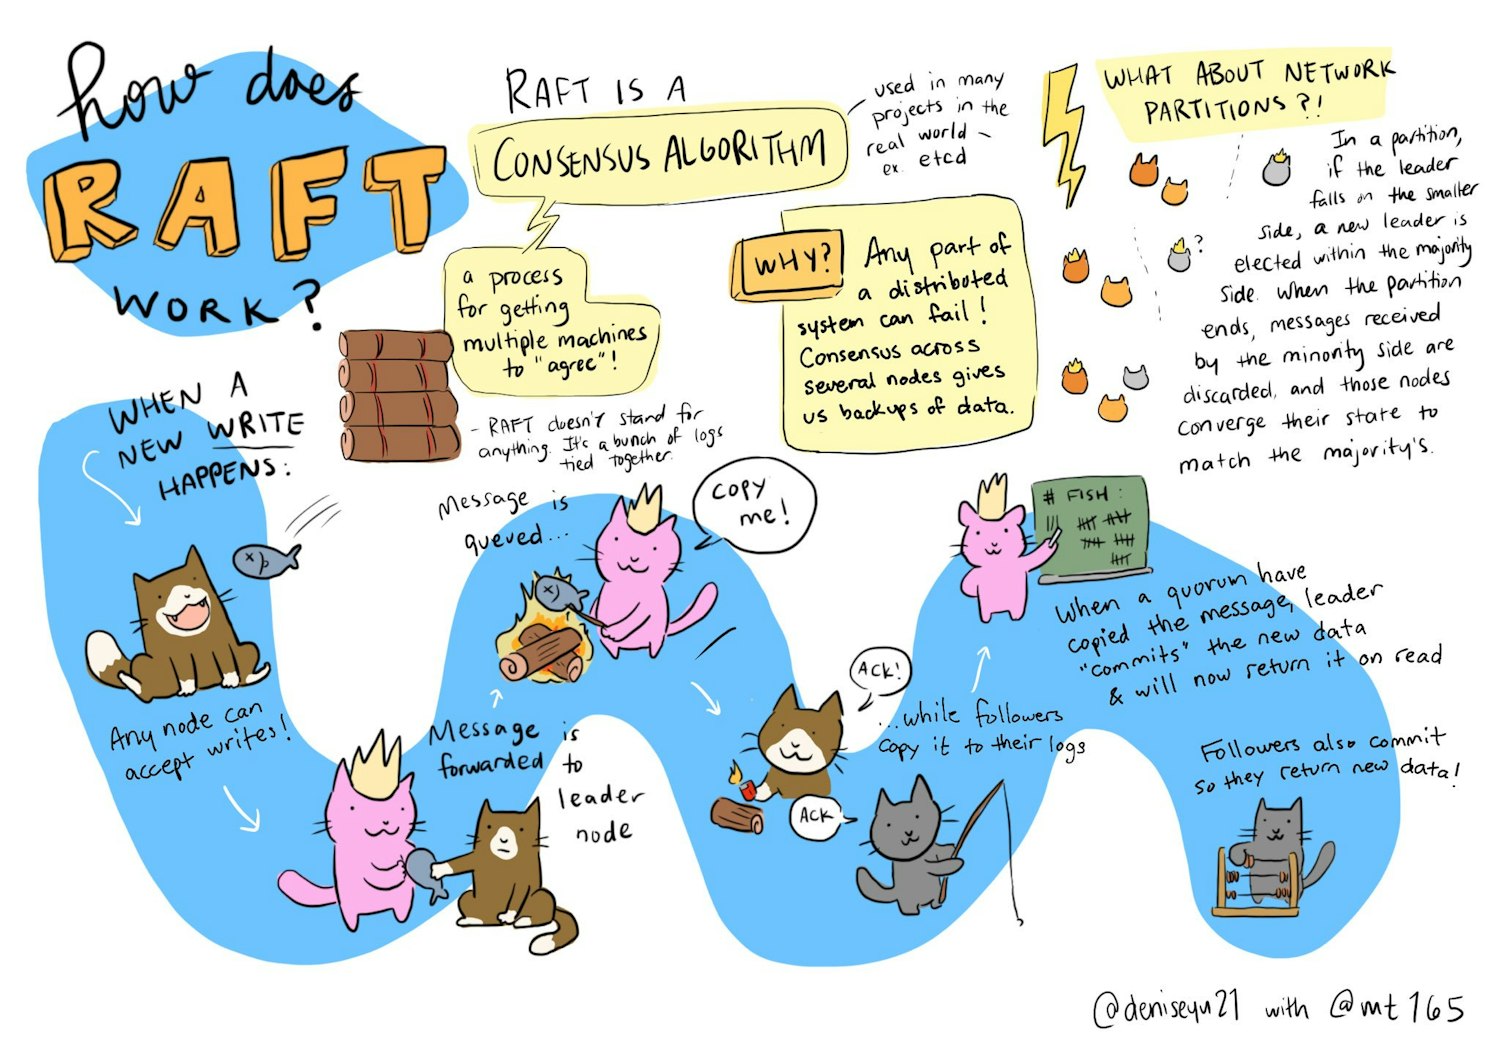 how does
RAFT
WORK?
RAFT IS A
CONSENSUS ALGORITHM
used in many
projects in the
real world –
ex. etcd
a process
for getting
multiple machines
to "agree"!
- RAFT doesn't stand for
anything. It's a bunch of logs
tied together.
WHY?
Any part of
a distributed
system can fail!
Consensus across
several nodes gives
us backups of data.
WHAT ABOUT NETWORK
PARTITIONS?!
In a partition,
if the leader
falls on the smaller
side, a new leader is
elected within the majority
side. When the partition
ends, messages received
by the minority side are
discarded, and those nodes
converge their state to
match the majority's.
?
WHEN A
NEW WRITE
HAPPENS:
Any node can
accept writes!
Message is
forwarded to
leader
node
Message is
queued...
COPY
me!
ACK!
ACK
...while followers
copy it to their logs
# FISH:
When a quorum have
copied the message, leader
"commits" the new data
& will now return it on read
Followers also commit
so they return new data!
@deniseyu21 with @mt165